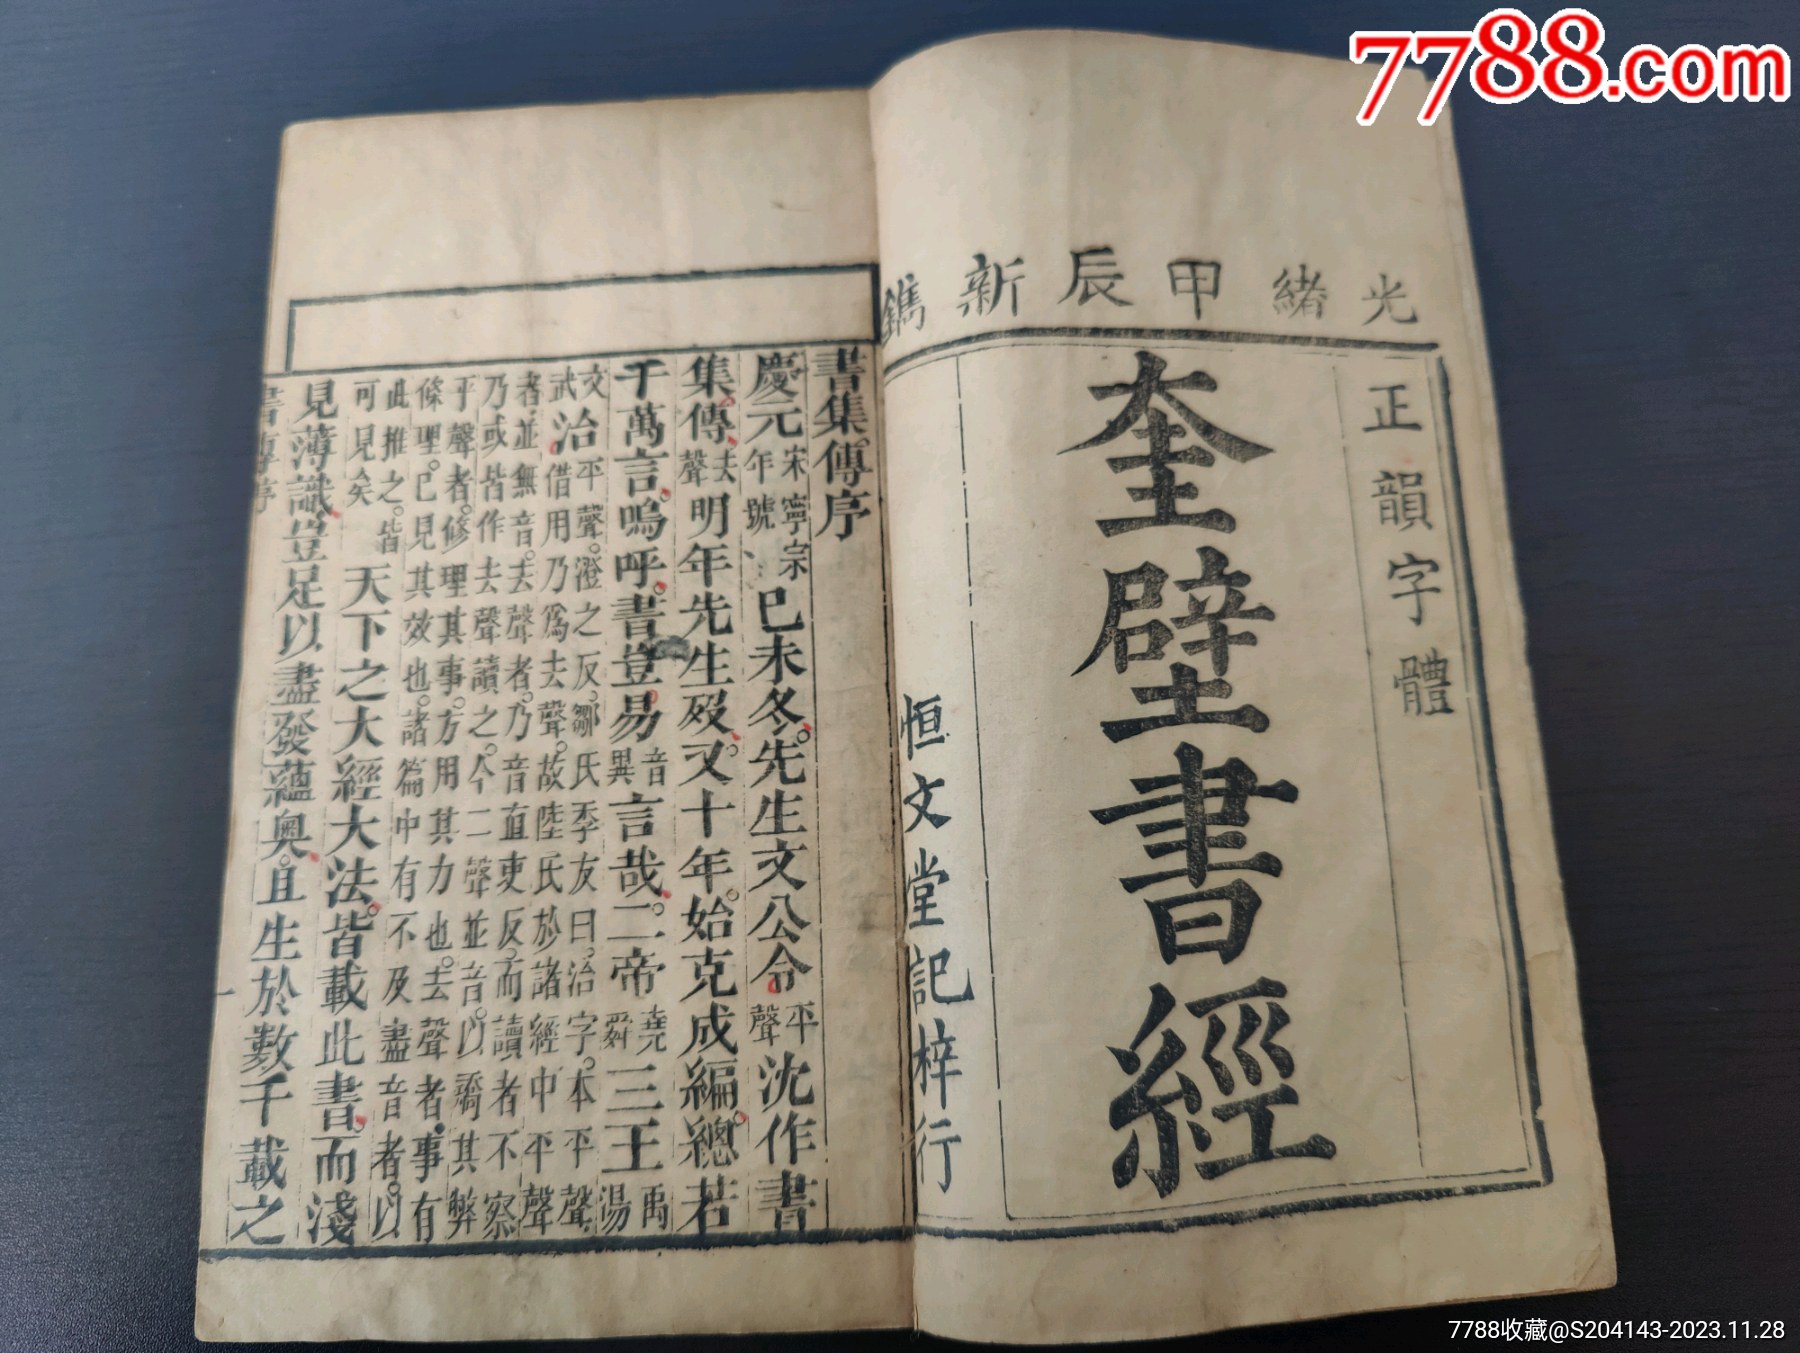 7788.com
光緒甲辰新鐫
正韻字體
奎壁書經
恒文堂記梓行
書集傳序
慶元宋寧宗年號已未冬。先生文公令平聲沈作書
集傳去聲。明年先生歿。又十年。始克成編。總若
千萬言。嗚呼。書豈易音異言哉。二帝堯舜三王禹湯
文武治平聲。澄之反。鄒氏季友曰。治字。本平聲。
借用乃爲去聲。故陸氏於諸經中平聲
者。並無音。去聲者。乃音直吏反。而讀者不察
乃或皆作去聲讀之。今二聲並音。以矯其弊
平聲者。修理其事。方用其力也。去聲者。事有
條理。已見其效也。諸篇中有不及盡音者。以
此推之。皆可見矣
天下之大經大法。皆載此書。而淺
見薄識。豈足以盡發蘊奧。且生於數千載之
書傳序
一
7788收藏@S204143-2023.11.28